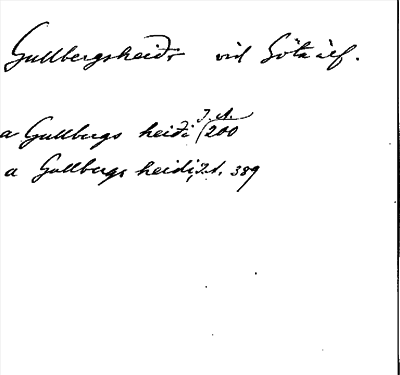 Gullbergsheiðr við Göta älf.
J. A.
a Gullbergs heiði (200
a Gullbergs heidi, J. A. 389